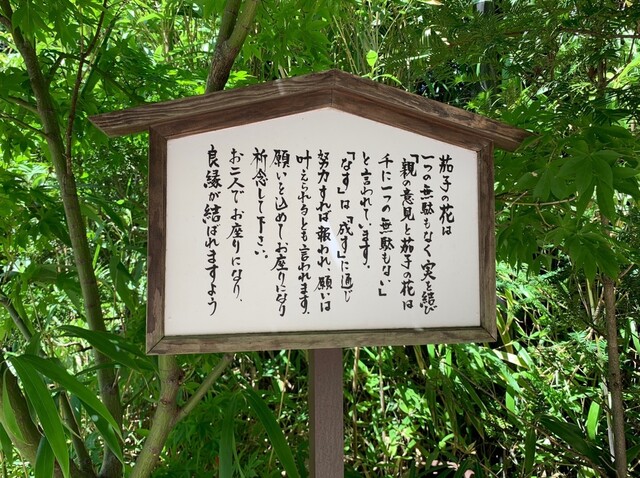 茄子の花は
一つの無駄もなく実を結び
「親の意見と茄子の花は
千に一つの無駄もない」
と言われています。
「なす」は「成す」に通じ
努力すれば報われ、願いは
叶えられるとも言われます。
願いを込めてお座りになり
祈念して下さい。
お二人でお座りになり、
良縁が結ばれますよう